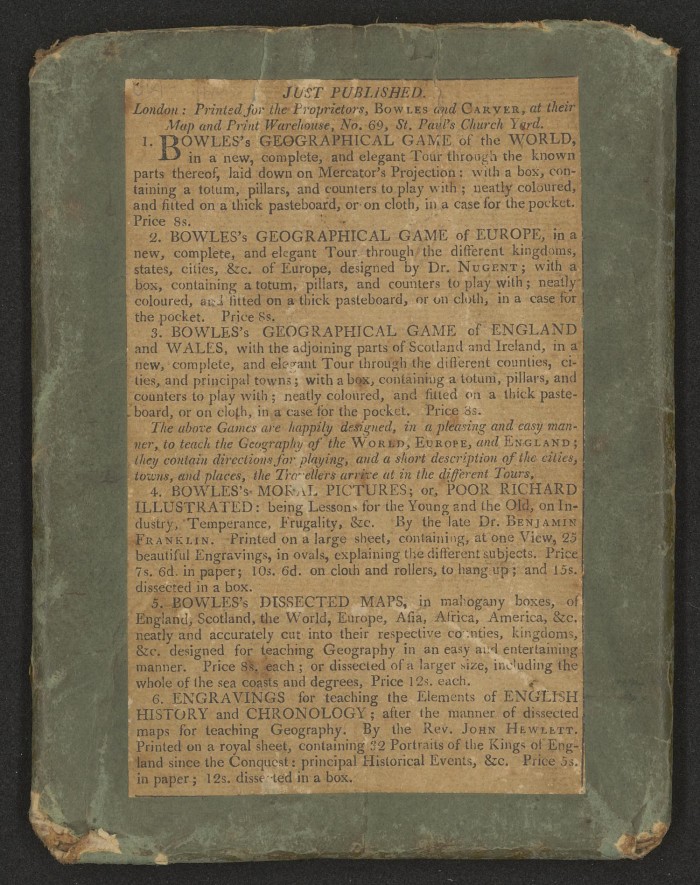 JUST PUBLISHED.
London: Printed for the Proprietors, BOWLES and CARVER, at their
Map and Print Warehouse, No. 69, St. Paul's Church Yard.
1. BOWLES's GEOGRAPHICAL GAME of the WORLD,
in a new, complete, and elegant Tour through the known
parts thereof, laid down on Mercator's Projection: with a box, con-
taining a totum, pillars, and counters to play with; neatly coloured,
and fitted on a thick pasteboard, or on cloth, in a case for the pocket.
Price 8s.
2. BOWLES's GEOGRAPHICAL GAME of EUROPE, in a
new, complete, and elegant Tour through the different kingdoms,
states, cities, &c. of Europe, designed by Dr. NUGENT; with a
box, containing a totum, pillars, and counters to play with; neatly
coloured, and fitted on a thick pasteboard, or on cloth, in a case for
the pocket. Price 8s.
3. BOWLES's GEOGRAPHICAL GAME of ENGLAND
and WALES, with the adjoining parts of Scotland and Ireland, in a
new, complete, and elegant Tour through the different counties, ci-
ties, and principal towns; with a box, containing a totum, pillars, and
counters to play with; neatly coloured, and fitted on a thick paste-
board, or on cloth, in a case for the pocket. Price 8s.
The above Games are happily designed, in a pleasing and easy man-
ner, to teach the Geography of the WORLD, EUROPE, and ENGLAND;
they contain directions for playing, and a short description of the cities,
towns, and places, the Travellers arrive at in the different Tours.
4. BOWLES's MORAL PICTURES; or, POOR RICHARD
ILLUSTRATED: being Lessons for the Young and the Old, on In-
dustry, Temperance, Frugality, &c. By the late Dr. BENJAMIN
FRANKLIN. Printed on a large sheet, containing, at one View, 25
beautiful Engravings, in ovals, explaining the different subjects. Price
7s. 6d. in paper; 10s. 6d. on cloth and rollers, to hang up; and 15s.
dissected in a box.
5. BOWLES's DISSECTED MAPS, in mahogany boxes, of
England, Scotland, the World, Europe, Asia, Africa, America, &c.
neatly and accurately cut into their respective counties, kingdoms,
&c. designed for teaching Geography in an easy and entertaining
manner. Price 8s. each; or dissected of a larger size, including the
whole of the sea coasts and degrees, Price 12s. each.
6. ENGRAVINGS for teaching the Elements of ENGLISH
HISTORY and CHRONOLOGY; after the manner of dissected
maps for teaching Geography. By the Rev. JOHN HEWLETT.
Printed on a royal sheet, containing 32 Portraits of the Kings of Eng-
land since the Conquest: principal Historical Events, &c. Price 5s.
in paper; 12s. dissected in a box.